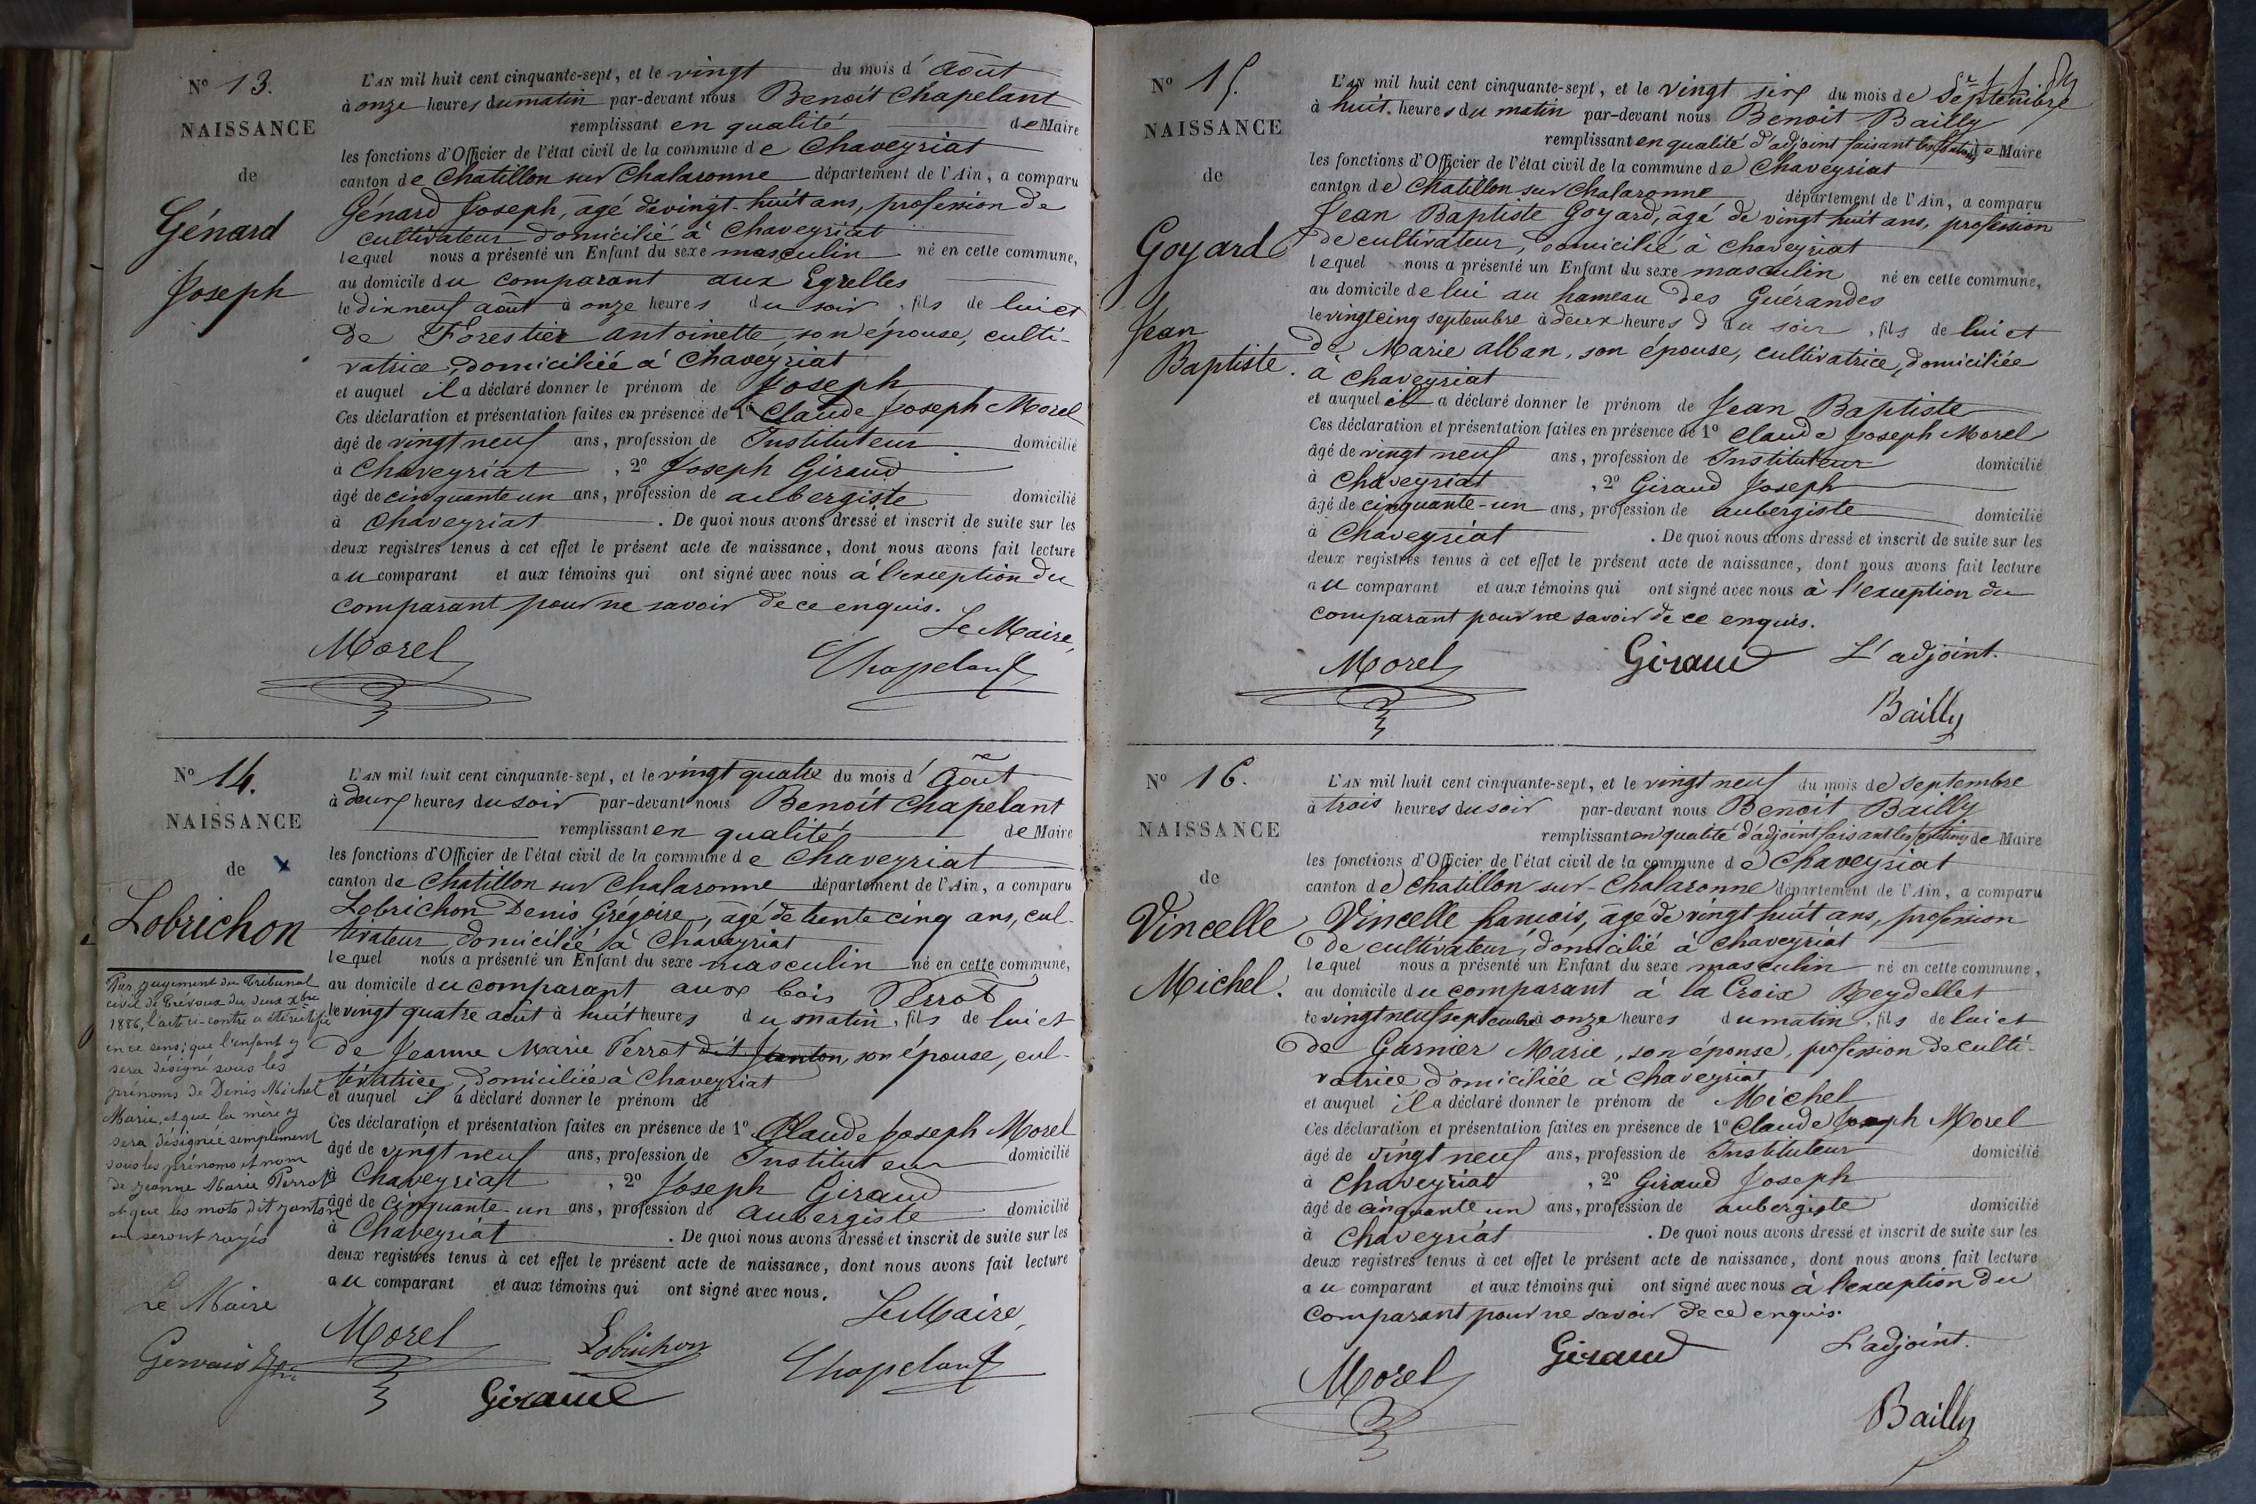 N° 13.
NAISSANCE
de
Génard
Joseph
L'AN mil huit cent cinquante-sept, et le vingt du mois d'août
à onze heures du matin par-devant nous Benoît Chapelant
remplissant en qualité de Maire
les fonctions d'Officier de l'état civil de la commune de Chaveyriat
canton de Chatillon sur Chalaronne département de l'Ain, a comparu
Génard Joseph, agé de vingt-huit ans, profession de
cultivateur domicilié à Chaveyriat
lequel nous a présenté un Enfant du sexe masculin né en cette commune,
au domicile du comparant aux Egrelles
le dix neuf août à onze heures du soir, fils de lui et
de Forestier antoinette, son épouse, culti-
vatrice, domiciliée à Chaveyriat
et auquel il a déclaré donner le prénom de Joseph
Ces déclaration et présentation faites en présence de 1° Claude Joseph Morel
âgé de vingt neuf ans, profession de Instituteur domicilié
à Chaveyriat, 2° Joseph Giraud
âgé de cinquante un ans, profession de aubergiste domicilié
à Chaveyriat. De quoi nous avons dressé et inscrit de suite sur les
deux registres tenus à cet effet le présent acte de naissance, dont nous avons fait lecture
au comparant et aux témoins qui ont signé avec nous à l'exception du
comparant pour ne savoir de ce enquis.
Le Maire,
Morel Chapelant
N° 14.
NAISSANCE
de x
Lobrichon
Par jugement du Tribunal
civil de Trévoux du deux Xbre
1886, l'acte ci-contre a été rectifié
en ce sens; que l'enfant y
sera désigné sous les
prénoms de Denis Michel
Marie, et que la mère y
sera désignée simplement
sous les prénoms et nom
de Jeanne Marie Perrot
et que les mots dit Janton
en seront rayés
Le Maire
Gervais
L'AN mil huit cent cinquante-sept, et le vingt quatre du mois d'août
à deux heures du soir par-devant nous Benoît Chapelant
remplissant en qualité de Maire
les fonctions d'Officier de l'état civil de la commune de Chaveyriat
canton de Chatillon sur Chalaronne département de l'Ain, a comparu
Lobrichon Denis Grégoire, âgé de trente cinq ans, cul-
tivateur, domicilié à Chaveyriat
lequel nous a présenté un Enfant du sexe masculin né en cette commune,
au domicile du comparant aux bois Perrot
le vingt quatre aout à huit heures du matin, fils de lui et
de Jeanne Marie Perrot dit Janton, son épouse, cul-
tivatrice, domiciliée à Chaveyriat
et auquel il a déclaré donner le prénom de
Ces déclaration et présentation faites en présence de 1° Claude Joseph Morel
âgé de vingt neuf ans, profession de Instituteur domicilié
à Chaveyriat, 2° Joseph Giraud
âgé de cinquante-un ans, profession de aubergiste domicilié
à Chaveyriat. De quoi nous avons dressé et inscrit de suite sur les
deux registres tenus à cet effet le présent acte de naissance, dont nous avons fait lecture
au comparant et aux témoins qui ont signé avec nous.
Le Maire,
Morel Lobrichon Chapelant
Giraud
N° 15.
NAISSANCE
de
Goyard
Jean
Baptiste.
L'AN mil huit cent cinquante-sept, et le vingt six du mois de Septembre
à huit heures du matin par-devant nous Benoit Bailly
remplissant en qualité d'adjoint faisant les fonctions de Maire
les fonctions d'Officier de l'état civil de la commune de Chaveyriat
canton de Chatillon sur Chalaronne département de l'Ain, a comparu
Jean Baptiste Goyard, agé de vingt huit ans, profession
de cultivateur, domicilié à Chaveyriat
lequel nous a présenté un Enfant du sexe masculin né en cette commune,
au domicile de lui au hameau des Guérandes
le vingt cinq septembre à deux heures du soir, fils de lui et
de Marie Alban, son épouse, cultivatrice, domiciliée
à Chaveyriat
et auquel il a déclaré donner le prénom de Jean Baptiste
Ces déclaration et présentation faites en présence de 1° Claude Joseph Morel
âgé de vingt neuf ans, profession de Instituteur domicilié
à Chaveyriat, 2° Giraud Joseph
âgé de cinquante-un ans, profession de aubergiste domicilié
à Chaveyriat. De quoi nous avons dressé et inscrit de suite sur les
deux registres tenus à cet effet le présent acte de naissance, dont nous avons fait lecture
au comparant et aux témoins qui ont signé avec nous à l'exception du
comparant pour ne savoir de ce enquis.
Morel Giraud L'adjoint.
Bailly
N° 16.
NAISSANCE
de
Vincelle
Michel.
L'AN mil huit cent cinquante-sept, et le vingt neuf du mois de septembre
à trois heures du soir par-devant nous Benoit Bailly
remplissant en qualité d'adjoint faisant les fonctions de Maire
les fonctions d'Officier de l'état civil de la commune de Chaveyriat
canton de Chatillon sur-Chalaronne département de l'Ain, a comparu
Vincelle francois, âgé de vingt huit ans, profession
de cultivateur, domicilié à Chaveyriat
lequel nous a présenté un Enfant du sexe masculin né en cette commune,
au domicile du comparant à la Croix Beydellet
le vingt neuf septembre à onze heures du matin, fils de lui et
de Garnier Marie, son épouse, profession de culti-
vatrice, domiciliée à Chaveyriat
et auquel il a déclaré donner le prénom de Michel
Ces déclaration et présentation faites en présence de 1° Claude Joseph Morel
âgé de vingt neuf ans, profession de Instituteur domicilié
à Chaveyriat, 2° Giraud Joseph
âgé de cinquante un ans, profession de aubergiste domicilié
à Chaveyriat. De quoi nous avons dressé et inscrit de suite sur les
deux registres tenus à cet effet le présent acte de naissance, dont nous avons fait lecture
au comparant et aux témoins qui ont signé avec nous à l'exception du
comparant pour ne savoir de ce enquis.
Morel Giraud L'adjoint.
Bailly